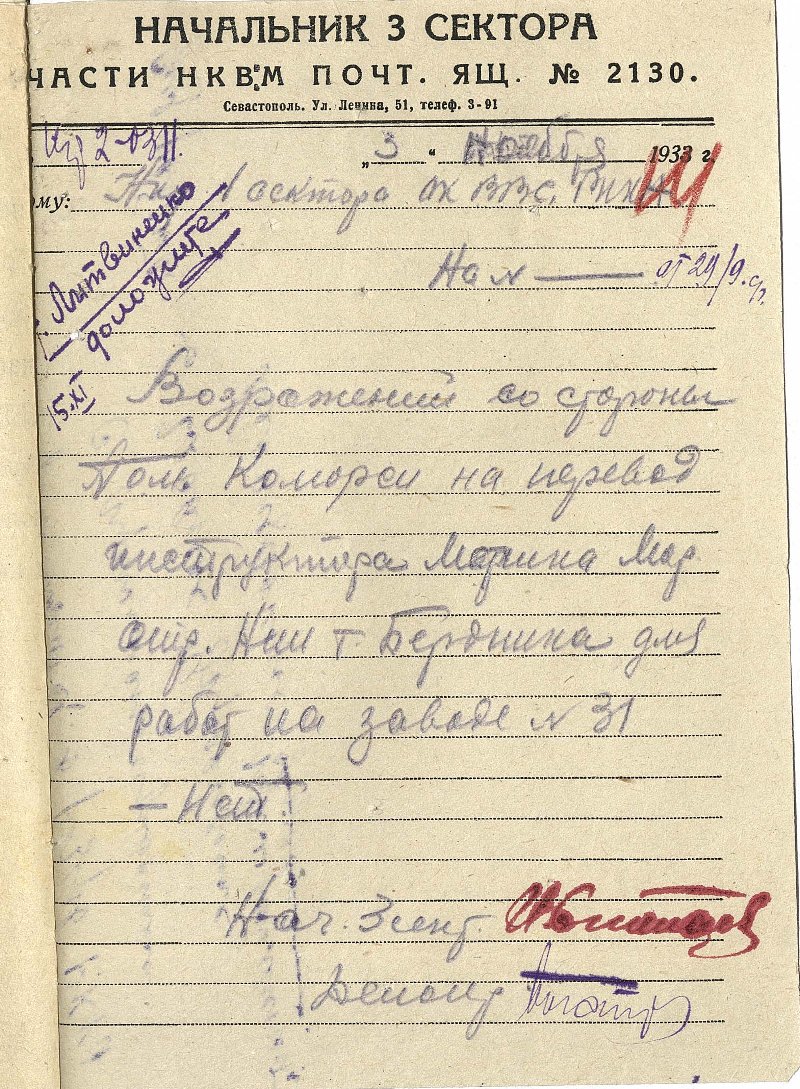 НАЧАЛЬНИК 3 СЕКТОРА
ЧАСТИ НКВ.М ПОЧТ. ЯЩ. № 2130.
Севастополь. Ул. Ленина, 51, телеф. 3-91
„3“ Ноября 1933 г.
ому: Нач. 1 сектора ОК ВВС
На № — от 29/9.
Литвиненко
доложите
15.XI
Возражений со стороны
Пом. Коморси на перевод
инструктора
стр. т. Бердника для
работ на заводе № 31
— Нет.
Нач. 3 сект.
Делопр.